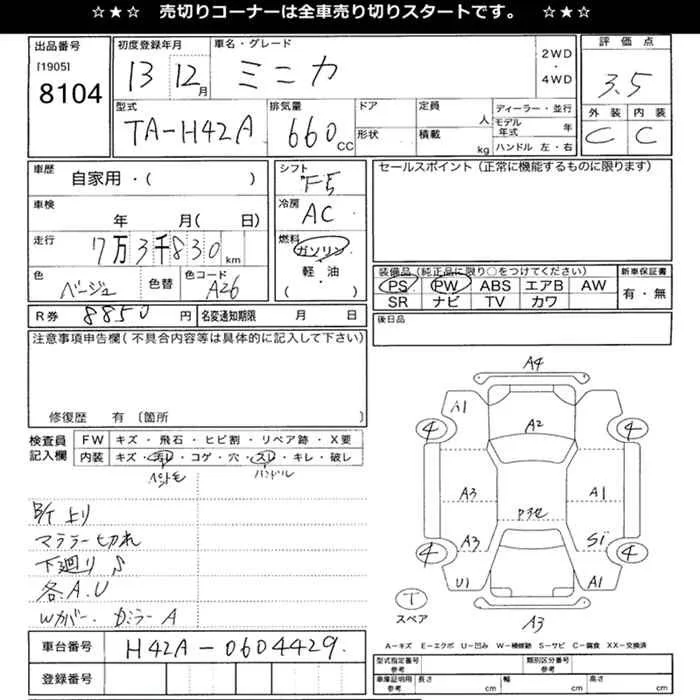 ☆★☆ 売切りコーナーは全車売り切りスタートです。 ☆★☆
出品番号
[1905]
8104
初度登録年月
13 12月
車名・グレード
ミニカ
2WD
・
4WD
評価点
3.5
外装 内装
C C
型式
TA-H42A
排気量
660 CC
ドア
形状
定員
人
積載
kg
ディーラー・並行
モデル年式 年
ハンドル 左・右
車歴
自家用・( )
シフト
F5
セールスポイント(正常に機能するものに限ります)
車検
年 月( 日)
冷房
AC
走行
7万3千830 km
燃料
ガソリン
軽・油
・
( )
色
ベージュ
色替
色コード
A26
装備品(純正品に限り○をつけてください)
PS PW ABS エアB AW
SR ナビ TV カワ
新車保証書
有・無
R券 8850 円
名変通知期限 月 日
後日品
注意事項申告欄(不具合内容等は具体的に記入して下さい)
修復歴 有〔箇所
検査員
記入欄
FW キズ・飛石・ヒビ割・リペア跡・X要
内装 キズ・汚レ・コゲ・穴・スレ・キレ・破レ
ハンドル
マフラー切れ
下廻りS
各A.U
Wカバー. ドミラーA
A4
A1
A2
4 4
A3 A1
A3 Si
4 4
U1 A1
A3
T
スペア
A-キズ E-エクボ U-凹み W-補修跡 S-サビ C-腐食 XX-交換済
車台番号
H42A-0604429.
登録番号
型式指定番号
参考
類別区分番号
参考
車庫証明用
参考
長さ cm
幅 cm
高さ cm